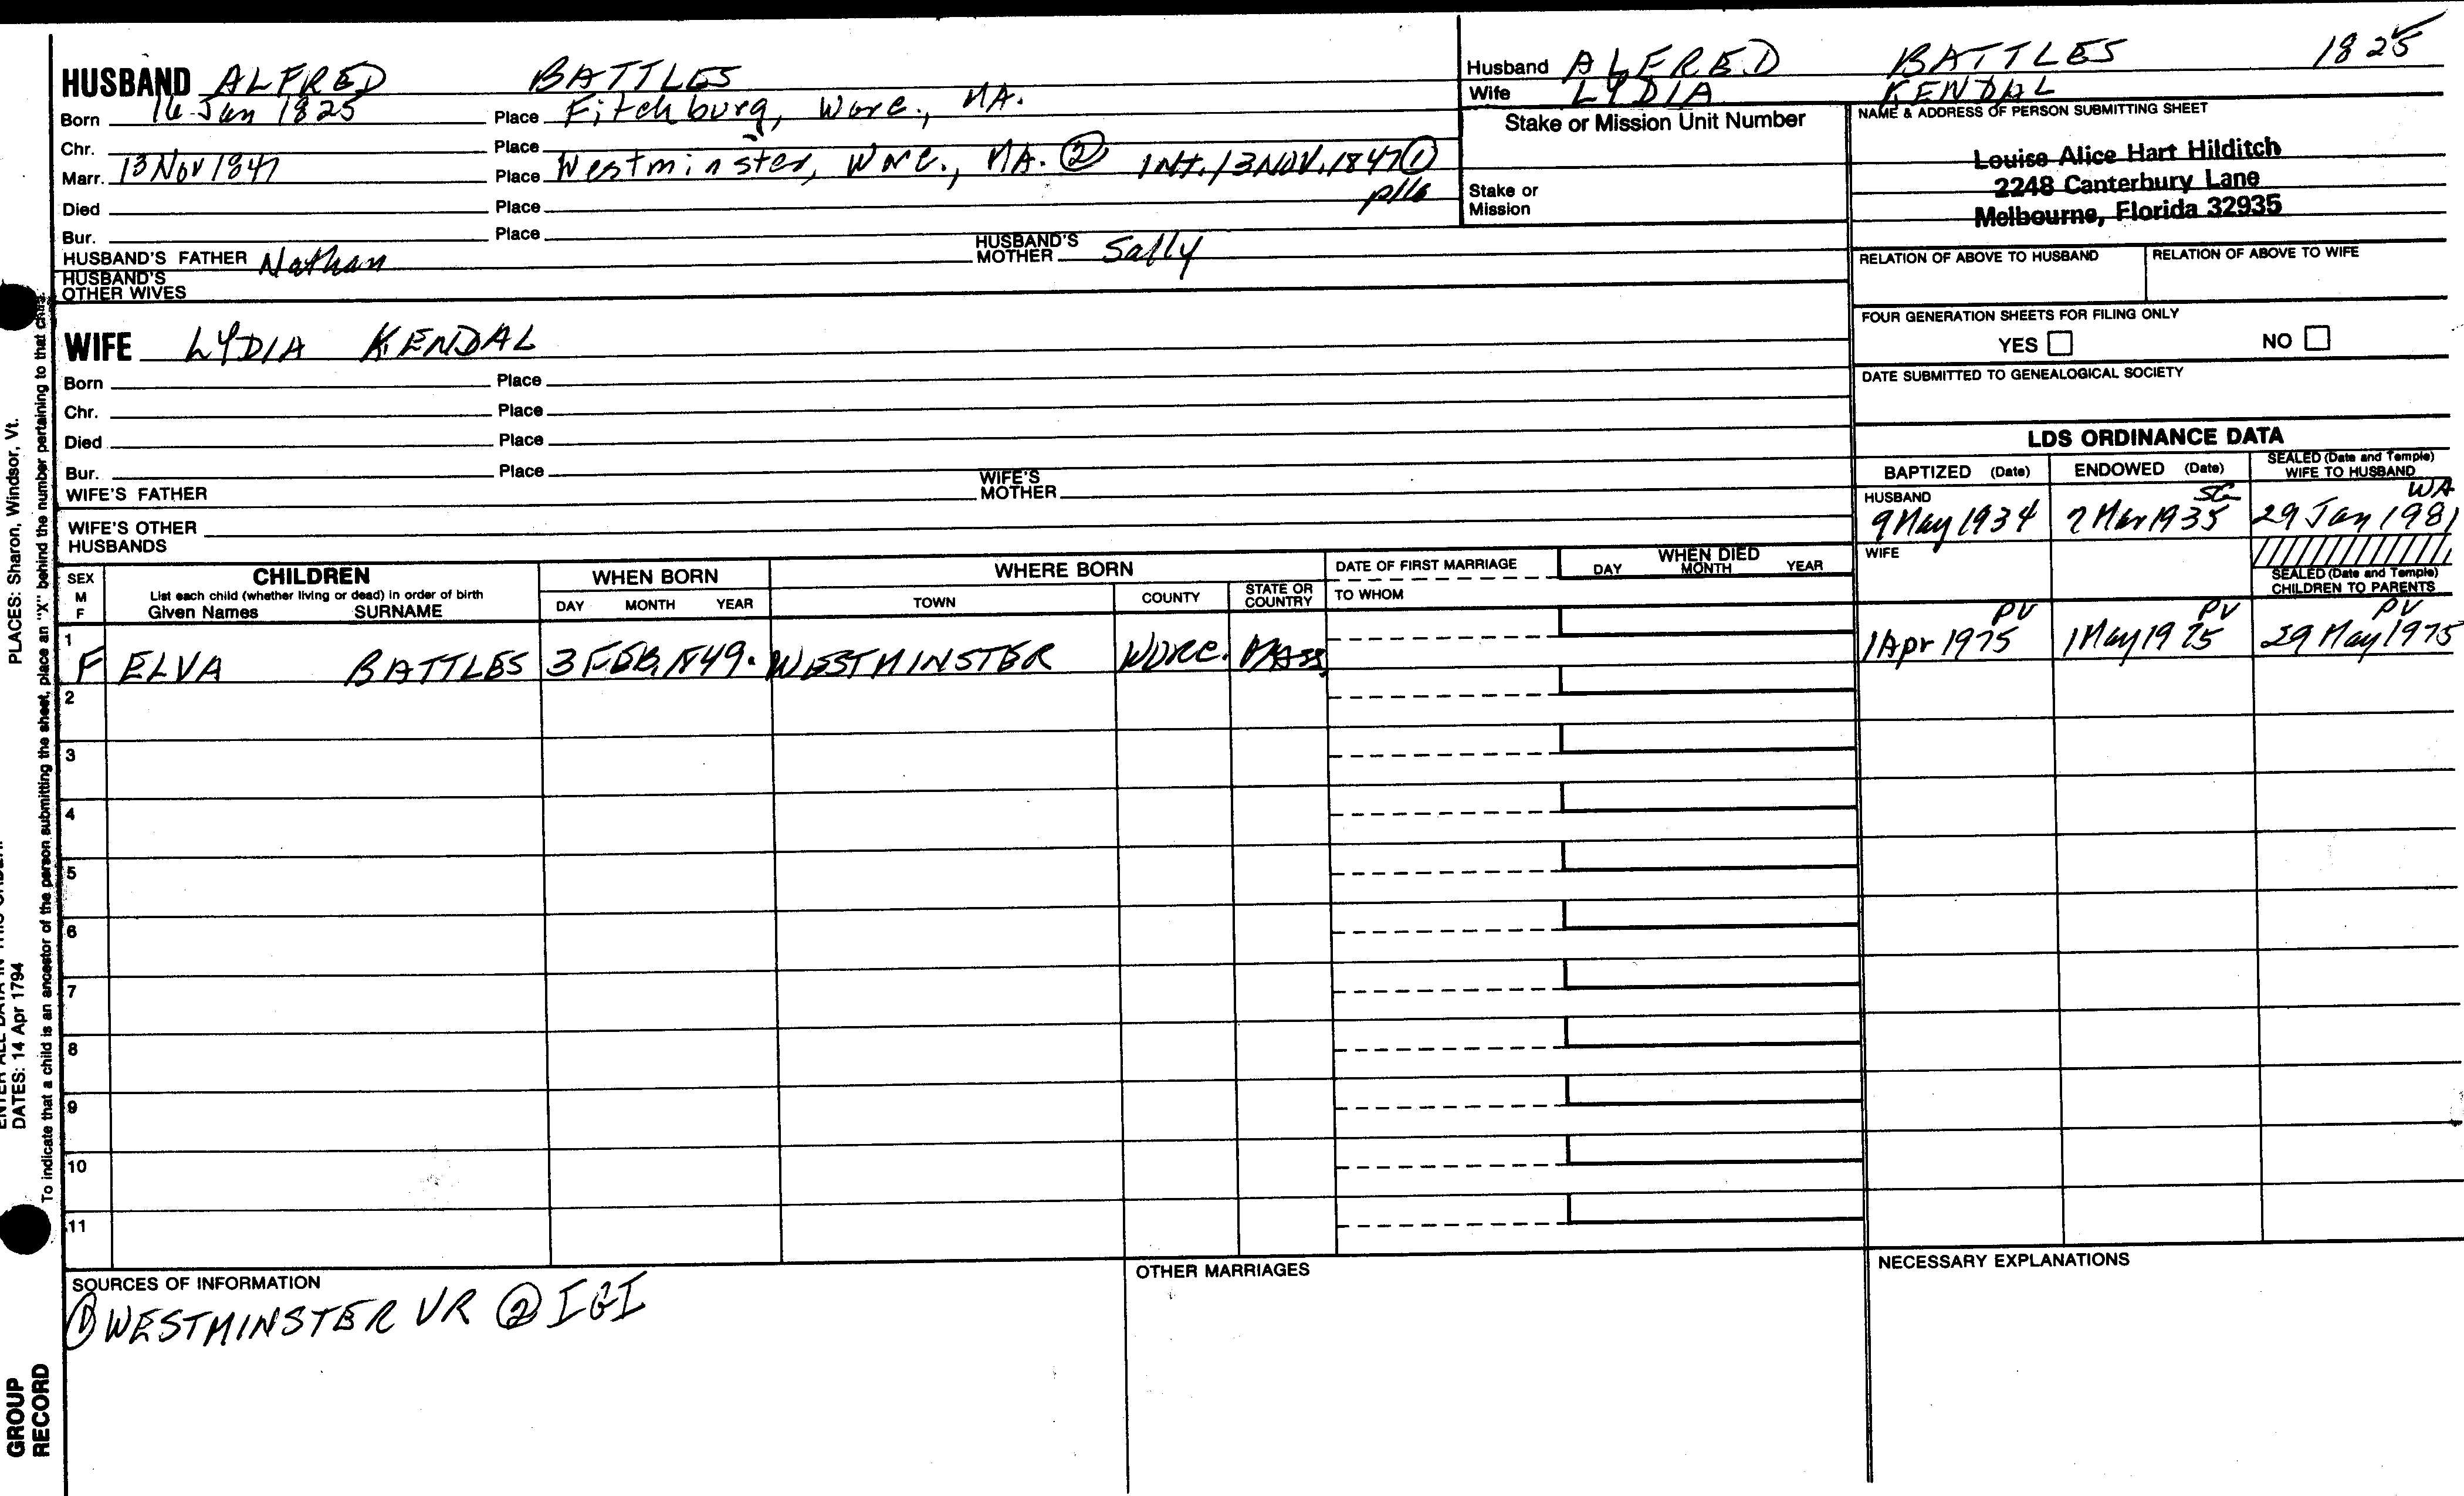 HUSBAND ALFRED BATTLES
Born 14 Jan 1825 Place Fitchburg, Worc., MA.
Chr. Place
Marr. 13 Nov 1847 Place Westminster, Worc., MA. ② INT. 13 NOV. 1847 ①
p116
Died Place
Bur. Place
HUSBAND'S FATHER Nathan HUSBAND'S MOTHER Sally
HUSBAND'S
OTHER WIVES
Husband ALFRED BATTLES 1825
Wife LYDIA KENDAL
Stake or Mission Unit Number
Stake or
Mission
NAME & ADDRESS OF PERSON SUBMITTING SHEET
Louise Alice Hart Hilditch
2248 Canterbury Lane
Melbourne, Florida 32935
RELATION OF ABOVE TO HUSBAND RELATION OF ABOVE TO WIFE
FOUR GENERATION SHEETS FOR FILING ONLY
YES NO
DATE SUBMITTED TO GENEALOGICAL SOCIETY
WIFE LYDIA KENDAL
Born Place
Chr. Place
Died Place
Bur. Place
WIFE'S FATHER WIFE'S MOTHER
WIFE'S OTHER
HUSBANDS
LDS ORDINANCE DATA
BAPTIZED (Date) ENDOWED (Date) SEALED (Date and Temple) WIFE TO HUSBAND
HUSBAND SG WA
9 May 1934 7 Mar 1935 29 Jan 1981
WIFE
SEALED (Date and Temple)
CHILDREN TO PARENTS
SEX M F CHILDREN WHEN BORN WHERE BORN DATE OF FIRST MARRIAGE WHEN DIED
List each child (whether living or dead) in order of birth
Given Names SURNAME DAY MONTH YEAR TOWN COUNTY STATE OR COUNTRY TO WHOM DAY MONTH YEAR
PV PV PV
1 F ELVA BATTLES 3 FEB, 1849. WESTMINSTER WORC. MASS 1 Apr 1975 1 May 1975 29 May 1975
2
3
4
5
6
7
8
9
10
11
SOURCES OF INFORMATION
① WESTMINSTER VR ② IGI
OTHER MARRIAGES
NECESSARY EXPLANATIONS
PLACES: Sharon, Windsor, Vt.
DATES: 14 Apr 1794
To indicate that a child is an ancestor of the person submitting the sheet, place an "X" behind the number pertaining to that
GROUP
RECORD